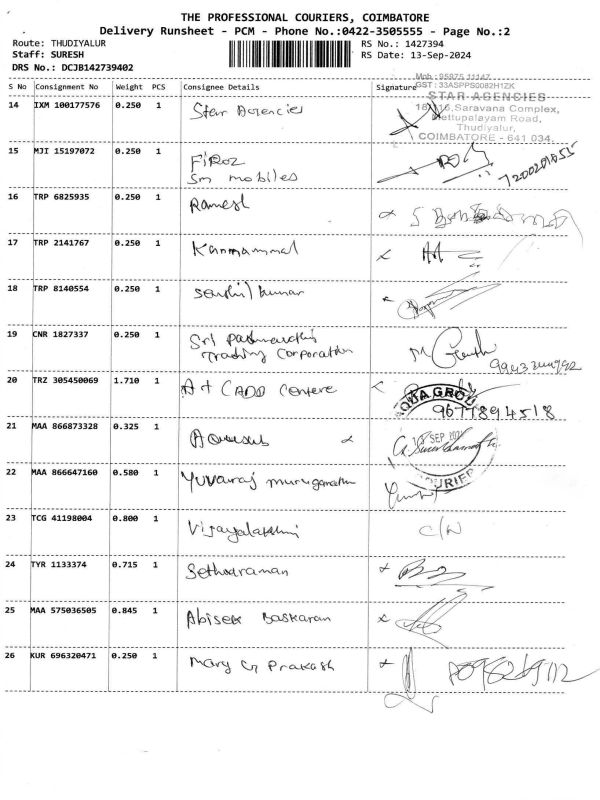 THE PROFESSIONAL COURIERS, COIMBATORE
Delivery Runsheet - PCM - Phone No.:0422-3505555 - Page No.:2
Route: THUDIYALUR
Staff: SURESH
DRS No.: DCJB142739402
RS No.: 1427394
RS Date: 13-Sep-2024
S No Consignment No Weight PCS Consignee Details Signature
Mob : 95975 11147
GST : 33ASPPS0082H1ZK
STAR AGENCIES
Saravana Complex,
Mettupalayam Road,
Thudiyalur,
COIMBATORE - 641 034.
14 IXM 100177576 0.250 1 Star Agencies
15 MJI 15197072 0.250 1 Firoz
Sm mobiles
7200201655
16 TRP 6825935 0.250 1 Ramesh
17 TRP 2141767 0.250 1 Kannammal
18 TRP 8140554 0.250 1 Senthil kumar
19 CNR 1827337 0.250 1 Sri Padmavathi
Trading Corporation
20 TRZ 305450069 1.710 1 A + CADD Centere
AQUA GROUP
9677894518
21 MAA 866873328 0.325 1
SEP
COURIER
22 MAA 866647160 0.580 1 Yuvaraj muruganathan
23 TCG 41198004 0.800 1 Vijayalakshmi C/N
24 TYR 1133374 0.715 1 Sethuraman
25 MAA 575036505 0.845 1 Abisek Baskaran
26 KUR 696320471 0.250 1 Mary G Prakash